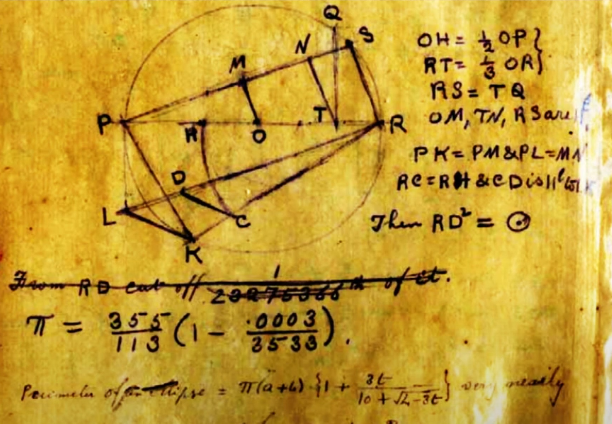 Q
S
N
M
P
H
O
T
R
D
L
C
K
OH = 1/2 OP}
RT = 1/3 OR}
RS = TQ
OM, TN, RS are
PK = PM & PL = MN
RC = RH & CD is
Then RD² = ⊙
From RD cut off 1/ th of it.
π = 355/113 (1 - .0003/3533).
Perimeter of an ellipse = π(a+b) {1 + 3t/10 + √4-3t} very nearly